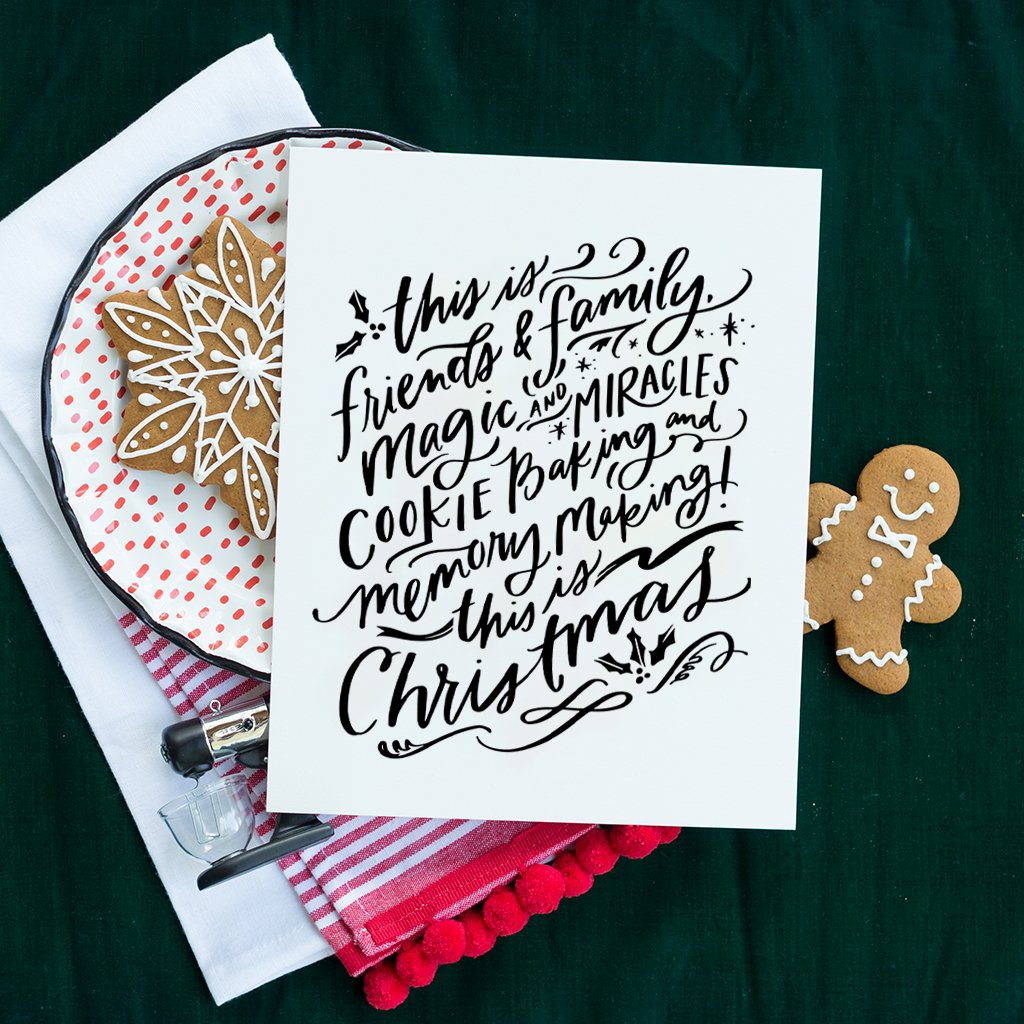 this is
friends & family,
magic AND MIRACLES
COOKIE Baking and
memory Making!
this is
Christmas